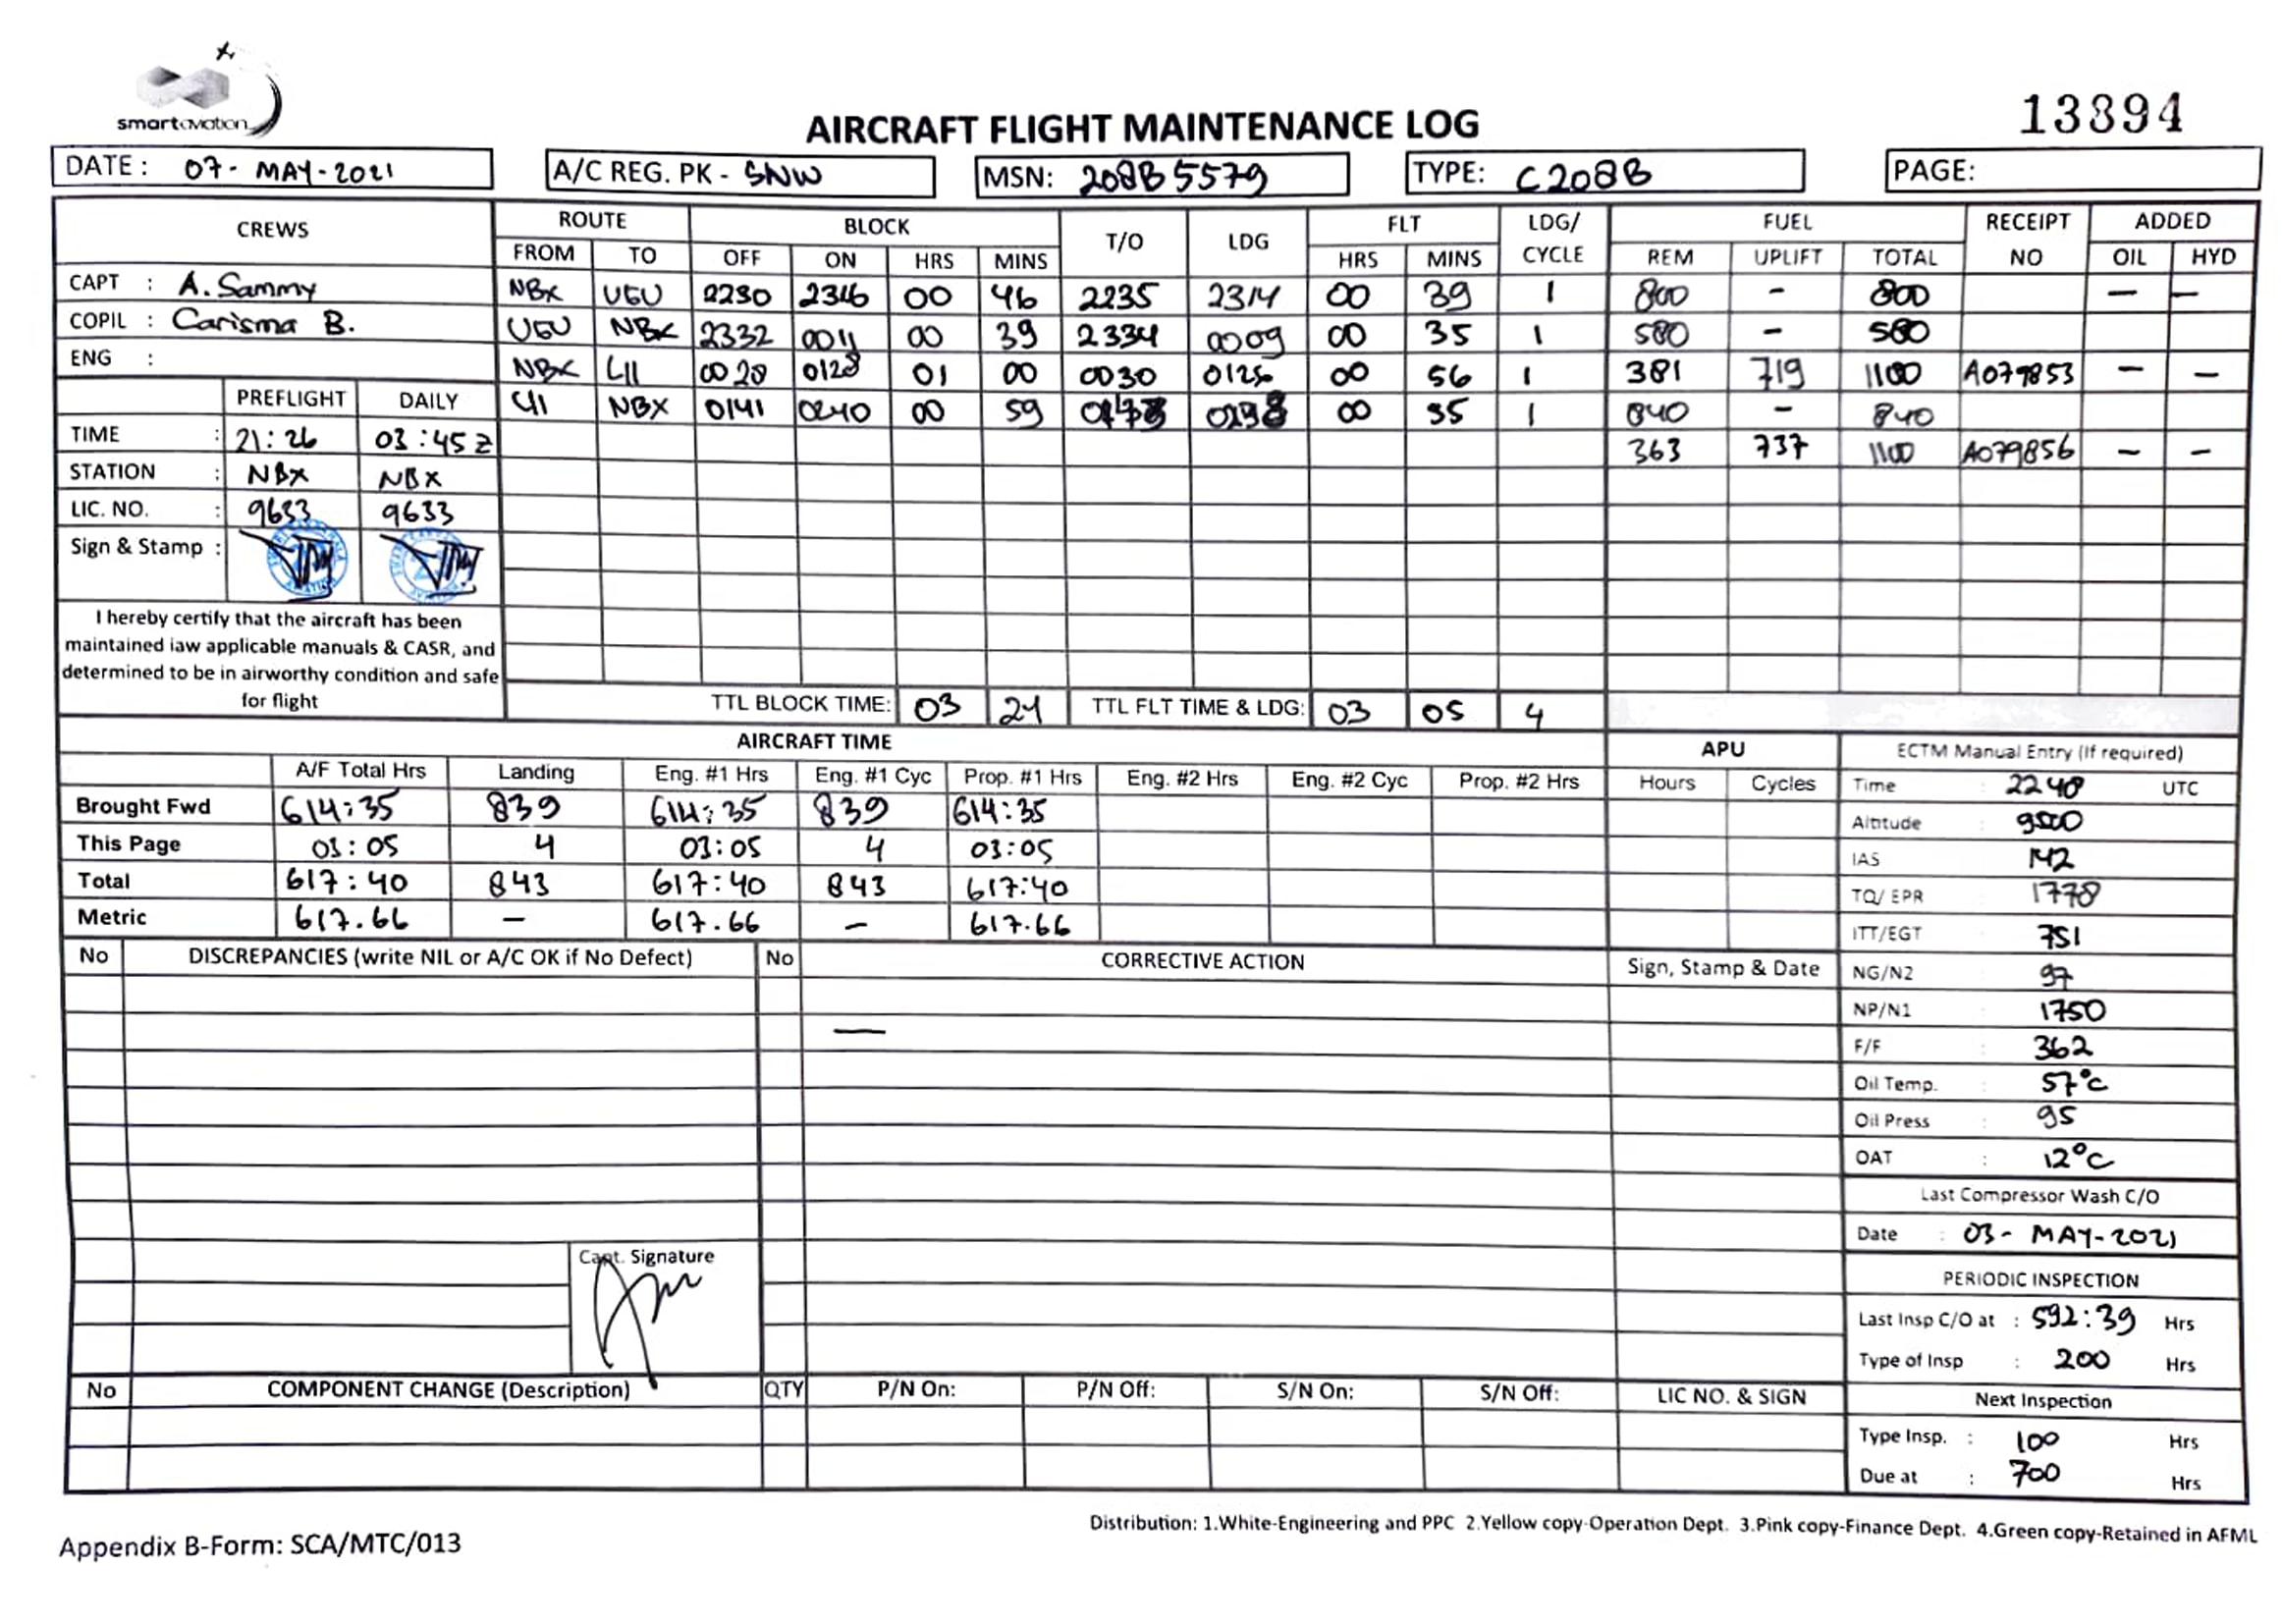 smart aviation
AIRCRAFT FLIGHT MAINTENANCE LOG
13894
DATE : 07 - MAY - 2021
A/C REG. PK - SNW
MSN: 208B5579
TYPE: C208B
PAGE:
CREWS ROUTE BLOCK T/O LDG FLT LDG/ CYCLE FUEL RECEIPT NO ADDED
FROM TO OFF ON HRS MINS HRS MINS REM UPLIFT TOTAL OIL HYD
CAPT : A. Sammy
COPIL : Carisma B.
ENG :
NBX UGU 2230 2316 00 46 2235 2314 00 39 1 800 - 800 — —
UGU NBX 2332 0011 00 39 2334 0009 00 35 1 580 - 580
NBX LII 0028 0128 01 00 0030 0126 00 56 1 381 719 1100 A079853 — —
LII NBX 0141 0240 00 59 00 55 1 840 - 840
363 737 1100 A079856 — —
PREFLIGHT DAILY
TIME : 21:26 03:45 Z
STATION : NBX NBX
LIC. NO. : 9633 9633
Sign & Stamp :
I hereby certify that the aircraft has been
maintained iaw applicable manuals & CASR, and
determined to be in airworthy condition and safe
for flight
TTL BLOCK TIME: 03 24 TTL FLT TIME & LDG: 03 05 4
AIRCRAFT TIME
A/F Total Hrs Landing Eng. #1 Hrs Eng. #1 Cyc Prop. #1 Hrs Eng. #2 Hrs Eng. #2 Cyc Prop. #2 Hrs
Brought Fwd 614:35 839 614:35 839 614:35
This Page 03:05 4 03:05 4 03:05
Total 617:40 843 617:40 843 617:40
Metric 617.66 — 617.66 — 617.66
APU
Hours Cycles
ECTM Manual Entry (If required)
Time : 2248 UTC
Altitude : 9500
IAS 142
TQ/ EPR 1778
ITT/EGT 751
NG/N2 97
NP/N1 1750
F/F : 362
Oil Temp. : 57°C
Oil Press : 95
OAT : 12°C
Last Compressor Wash C/O
Date : 03 - MAY - 2021
PERIODIC INSPECTION
Last Insp C/O at : 592:39 Hrs
Type of Insp : 200 Hrs
Next Inspection
Type Insp. : 100 Hrs
Due at : 700 Hrs
No DISCREPANCIES (write NIL or A/C OK if No Defect) No CORRECTIVE ACTION Sign, Stamp & Date
—
Capt. Signature
No COMPONENT CHANGE (Description) QTY P/N On: P/N Off: S/N On: S/N Off: LIC NO. & SIGN
Distribution: 1.White-Engineering and PPC 2.Yellow copy-Operation Dept. 3.Pink copy-Finance Dept. 4.Green copy-Retained in AFML
Appendix B-Form: SCA/MTC/013